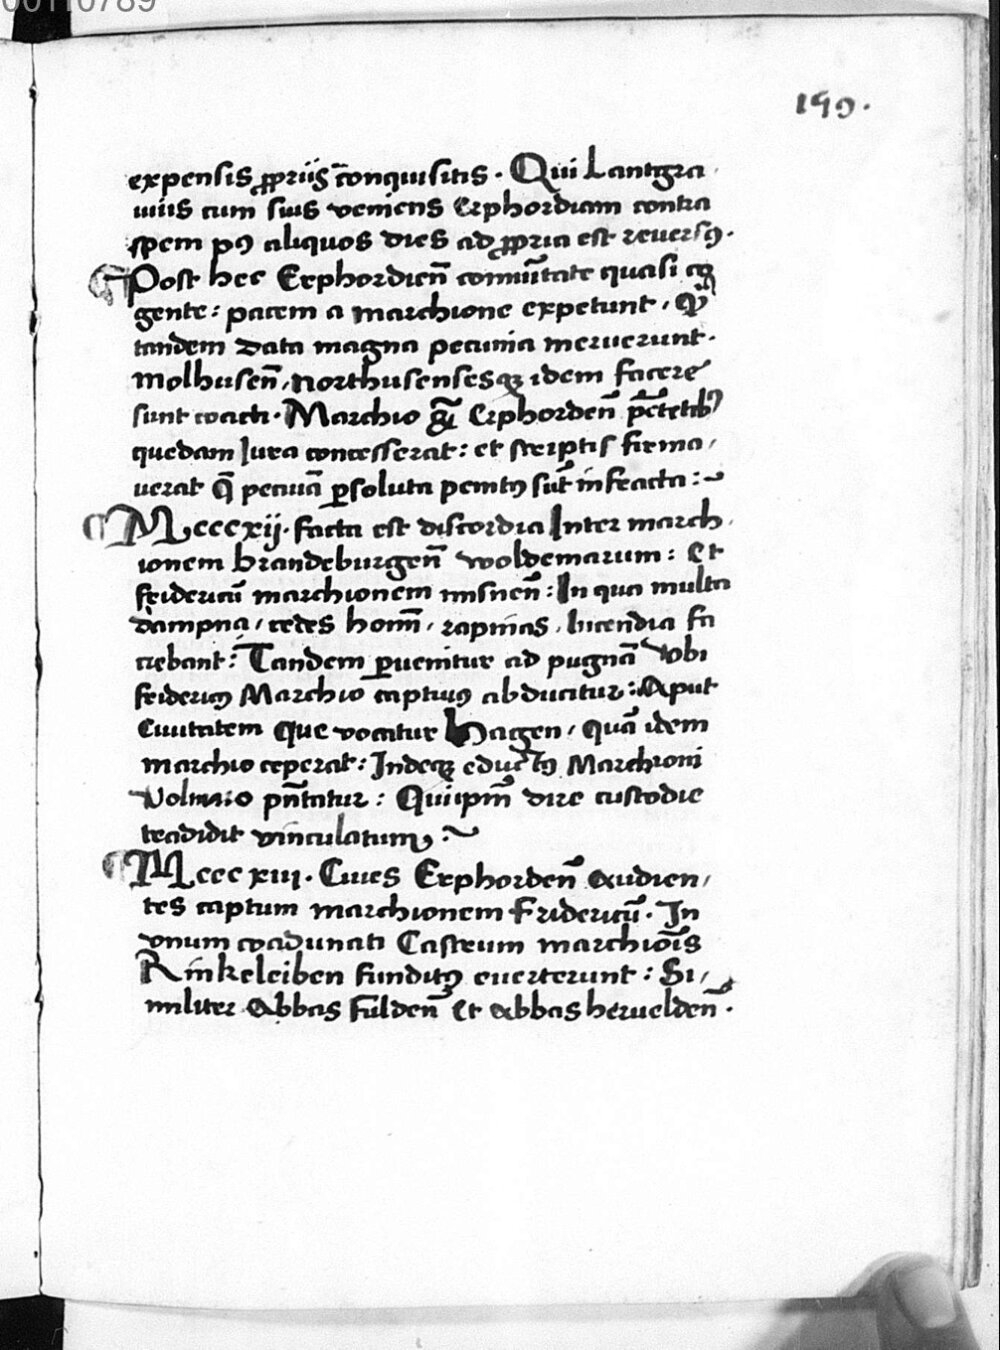 00110789
159.
expensis ꝓpriis conquisitis. Qui Lantgra
uius cum suis veniens Erphordiam contra
spem pꝰ aliquos dies ad ꝓpria est reuersꝰ.
Post hec Erphordien̄ com̄unitate quasi co
gente: pacem a marchione expetunt.
tandem data magna pecunia meruerunt.
Molhusen̄, northusensesqꝫ idem facere
sunt coacti. Marchio Erphorden̄
quedam Iura concesserat: et scriptis firma/
uerat q̄ pecuniā ꝑsoluta penitꝰ sūt infracta:~
Mcccxij. facta est discordia Inter march
ionem brandeburgen̄ woldemarum: Et
fridericū marchionem misnen̄: In qua multa
dampna, cedes homī, rapinas, Incendia fa
ciebant: Tandem ꝑuenitur ad pugnā Vbi
fridericꝰ Marchio captiuꝰ abducitur: Aput
Ciuitatem Que vocatur Hagen, Quā idem
marchio ceperat: Indeqꝫ eductꝰ Marchioni
Volmaro pn̄tatur: Qui ipm̄ dire custodie
tradidit vinculatum:~
Mcccxiii. Ciues Erphorden̄ Audien/
tes captum marchionem Fridericū. In
vnum coadunati Castrum marchiōis
Rinkeleiben funditꝰ euerterunt: Si/
militer Abbas Fulden̄ Et abbas heruelden̄.